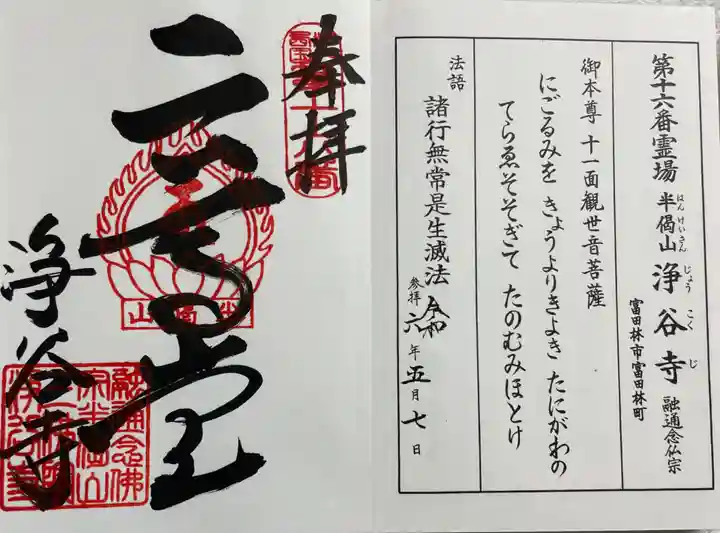 第十六番霊場 半偈山 浄谷寺 融通念仏宗
はんげいさん じょうこくじ
富田林市富田林町
御本尊 十一面観世音菩薩
にごるみを きょうよりきよき たにがわの
てらゑそそぎて たのむみほとけ
法語 諸行無常是生滅法
参拝 令和六年五月七日
奉拝
浄谷寺
融通念佛
宗半偈山